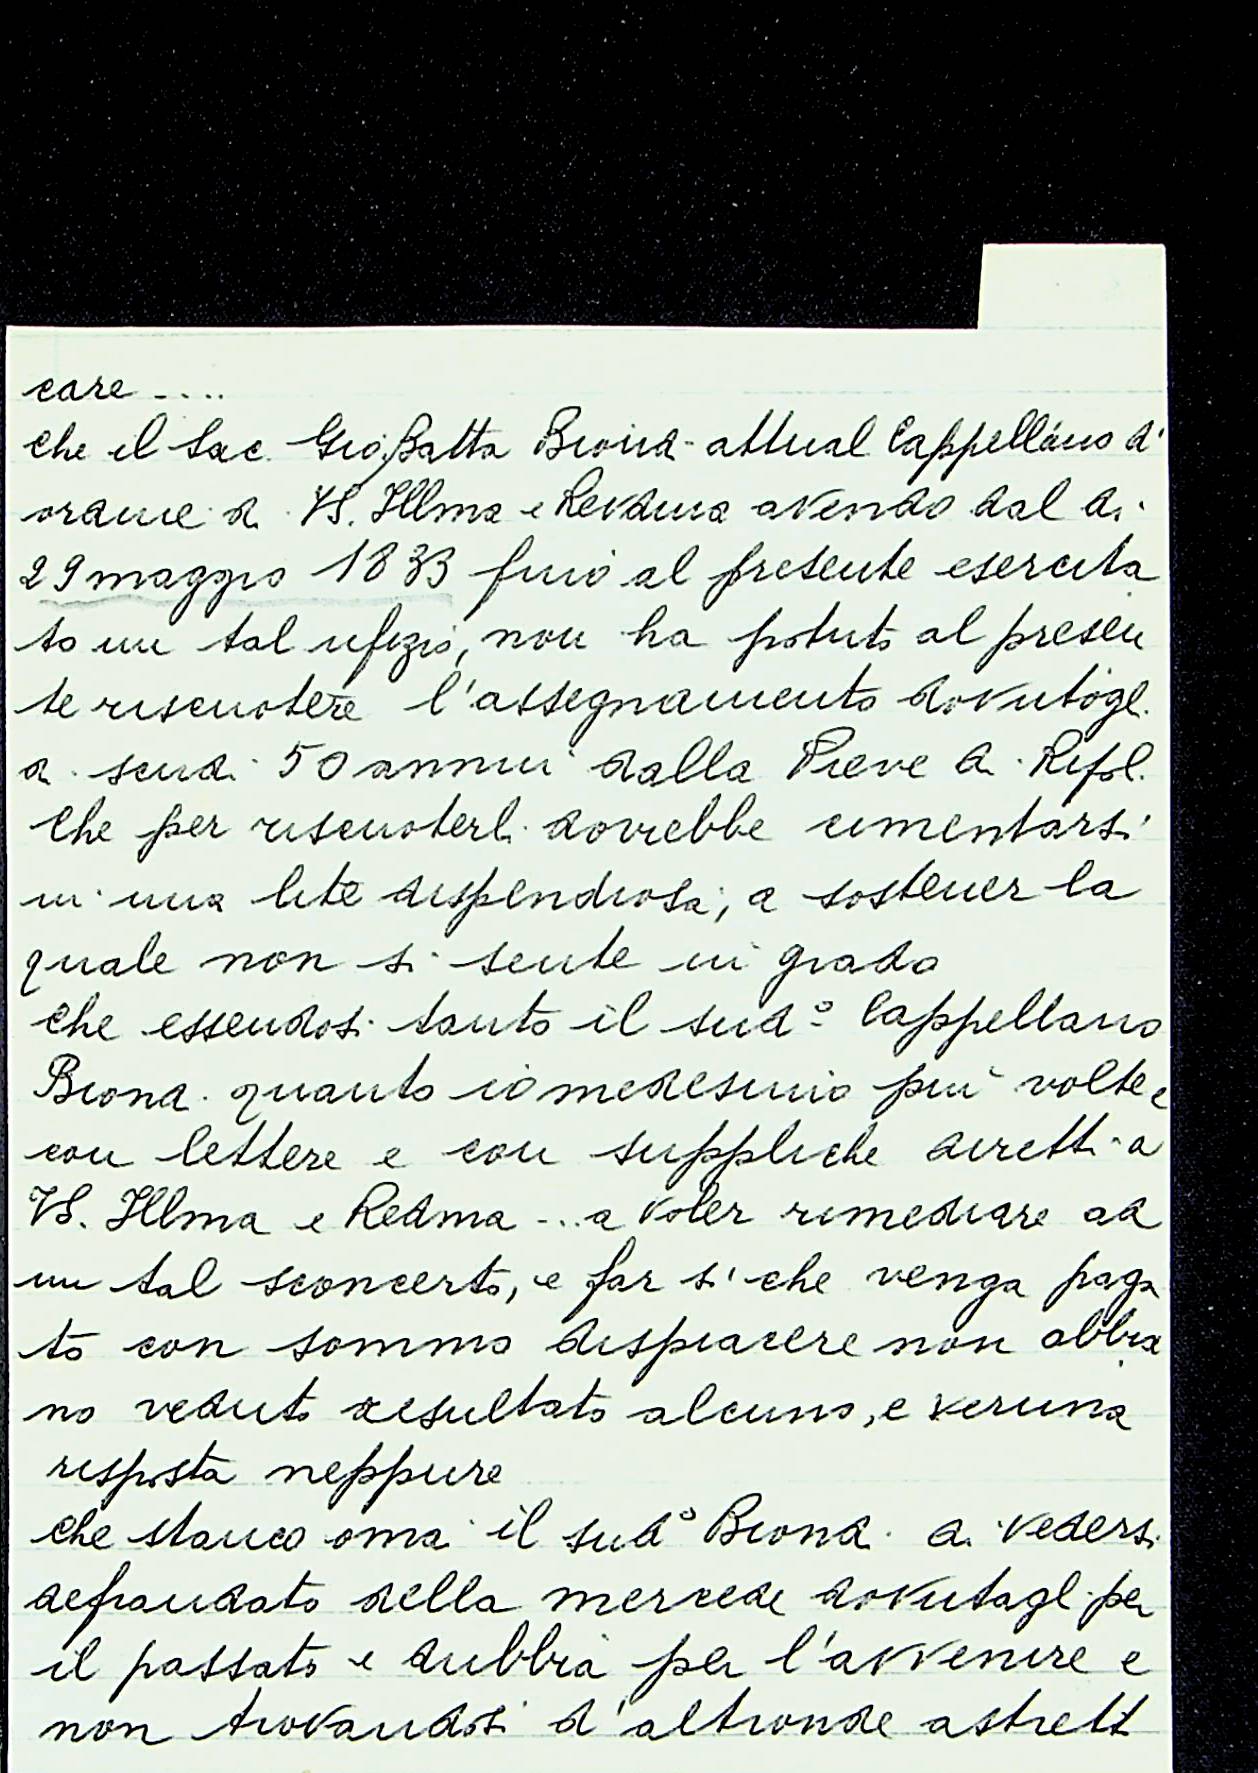 care ....
che il Sac. Gio. Batta Biondi attual Cappellano d'
ordine di VS. Illma e Revdma avendo dal di
29 maggio 1833 fino al presente esercita
to un tal ufizio, non ha potuto al presen
te riscuotere l'assegnamento dovutogli
di scudi 50 annui dalla Pieve di Ripoli
che per riscuoterli dovrebbe cimentarsi
in una lite dispendiosa, a sostener la
quale non si sente in grado
che essendosi tanto il sudº Cappellano
Biondi quanto io medesimo più volte e
con lettere e con suppliche diretti a
VS. Illma e Redma ... a voler rimediare ad
un tal sconcerto, e far si che venga paga
to con sommo dispiacere non abbia
no veduto resultato alcuno, e veruna
risposta neppure
che stanco omai il sudº Biondi di vedersi
defraudato della mercede dovutagli per
il passato e dubbia per l'avvenire e
non trovandosi d'altronde astrett